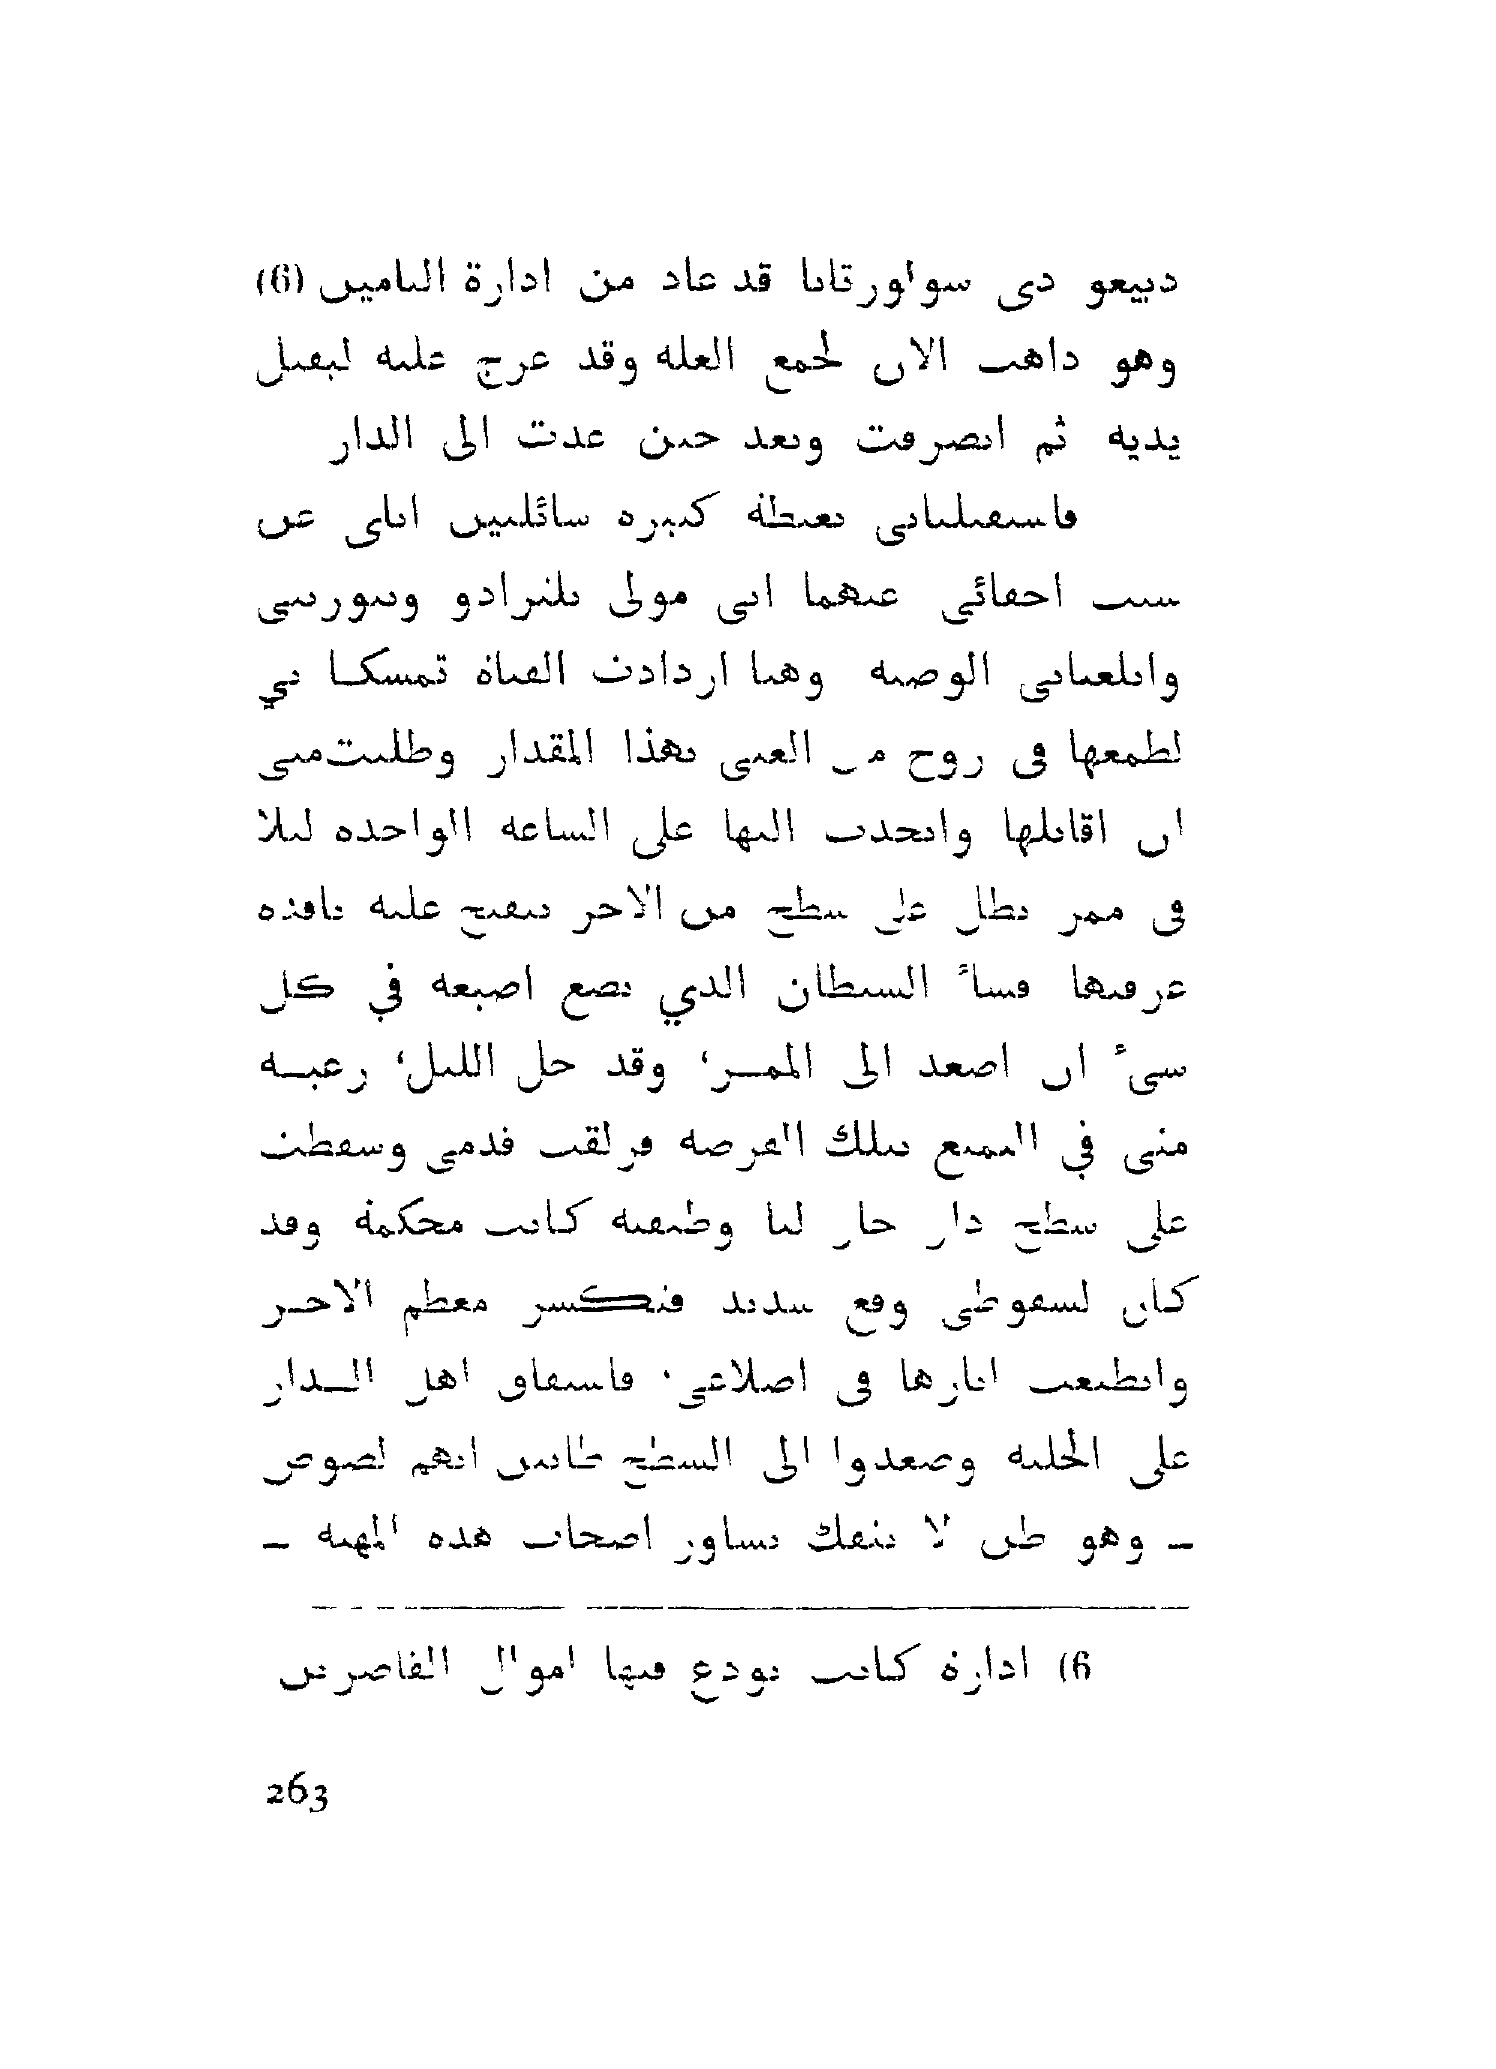 دييعو دى سولورتانا قد عاد من ادارة التامين (6)
وهو ذاهب الان لجمع الغلة وقد عرج عليه ليقبل
يديه ثم انصرفت وبعد حين عدت الى الدار
فاستقبلتانى بغبطة كبيرة سائلتين اياى عن
سبب اختفائى عنهما انى مولى بلنرادو وبنورتيى
وابلغتانى الوصية وهنا ازدادت الفتاة تمسكـا بي
لطمعها فى زوج من الغنى بهذا المقدار وطلبت منى
ان اقابلها واتحدث اليها على الساعة الواحدة ليلا
فى ممر يطل على سطح من الاجر تنفتح عليه نافذة
غرفتها فشاء الشيطان الذي يضع اصبعه في كل
شيء ان اصعد الى الممـر، وقد حل الليل، رغبـة
منى في التمتع بتلك الفرصة فزلقت قدمى وسقطت
على سطح دار جار لنا وظيفته كاتب محكمة وقد
كان لسقوطى وقع شديد فتكسر معظم الاجـر
وانطبعت اثارها فى اضلاعى. فاستفاق اهل الـدار
على الجلبة وصعدوا الى السطح ظانين انهم لصوص
– وهو ظن لا ينفك يساور اصحاب هذه المهنة –
6) ادارة كانت تودع فيها اموال القاصرين
263